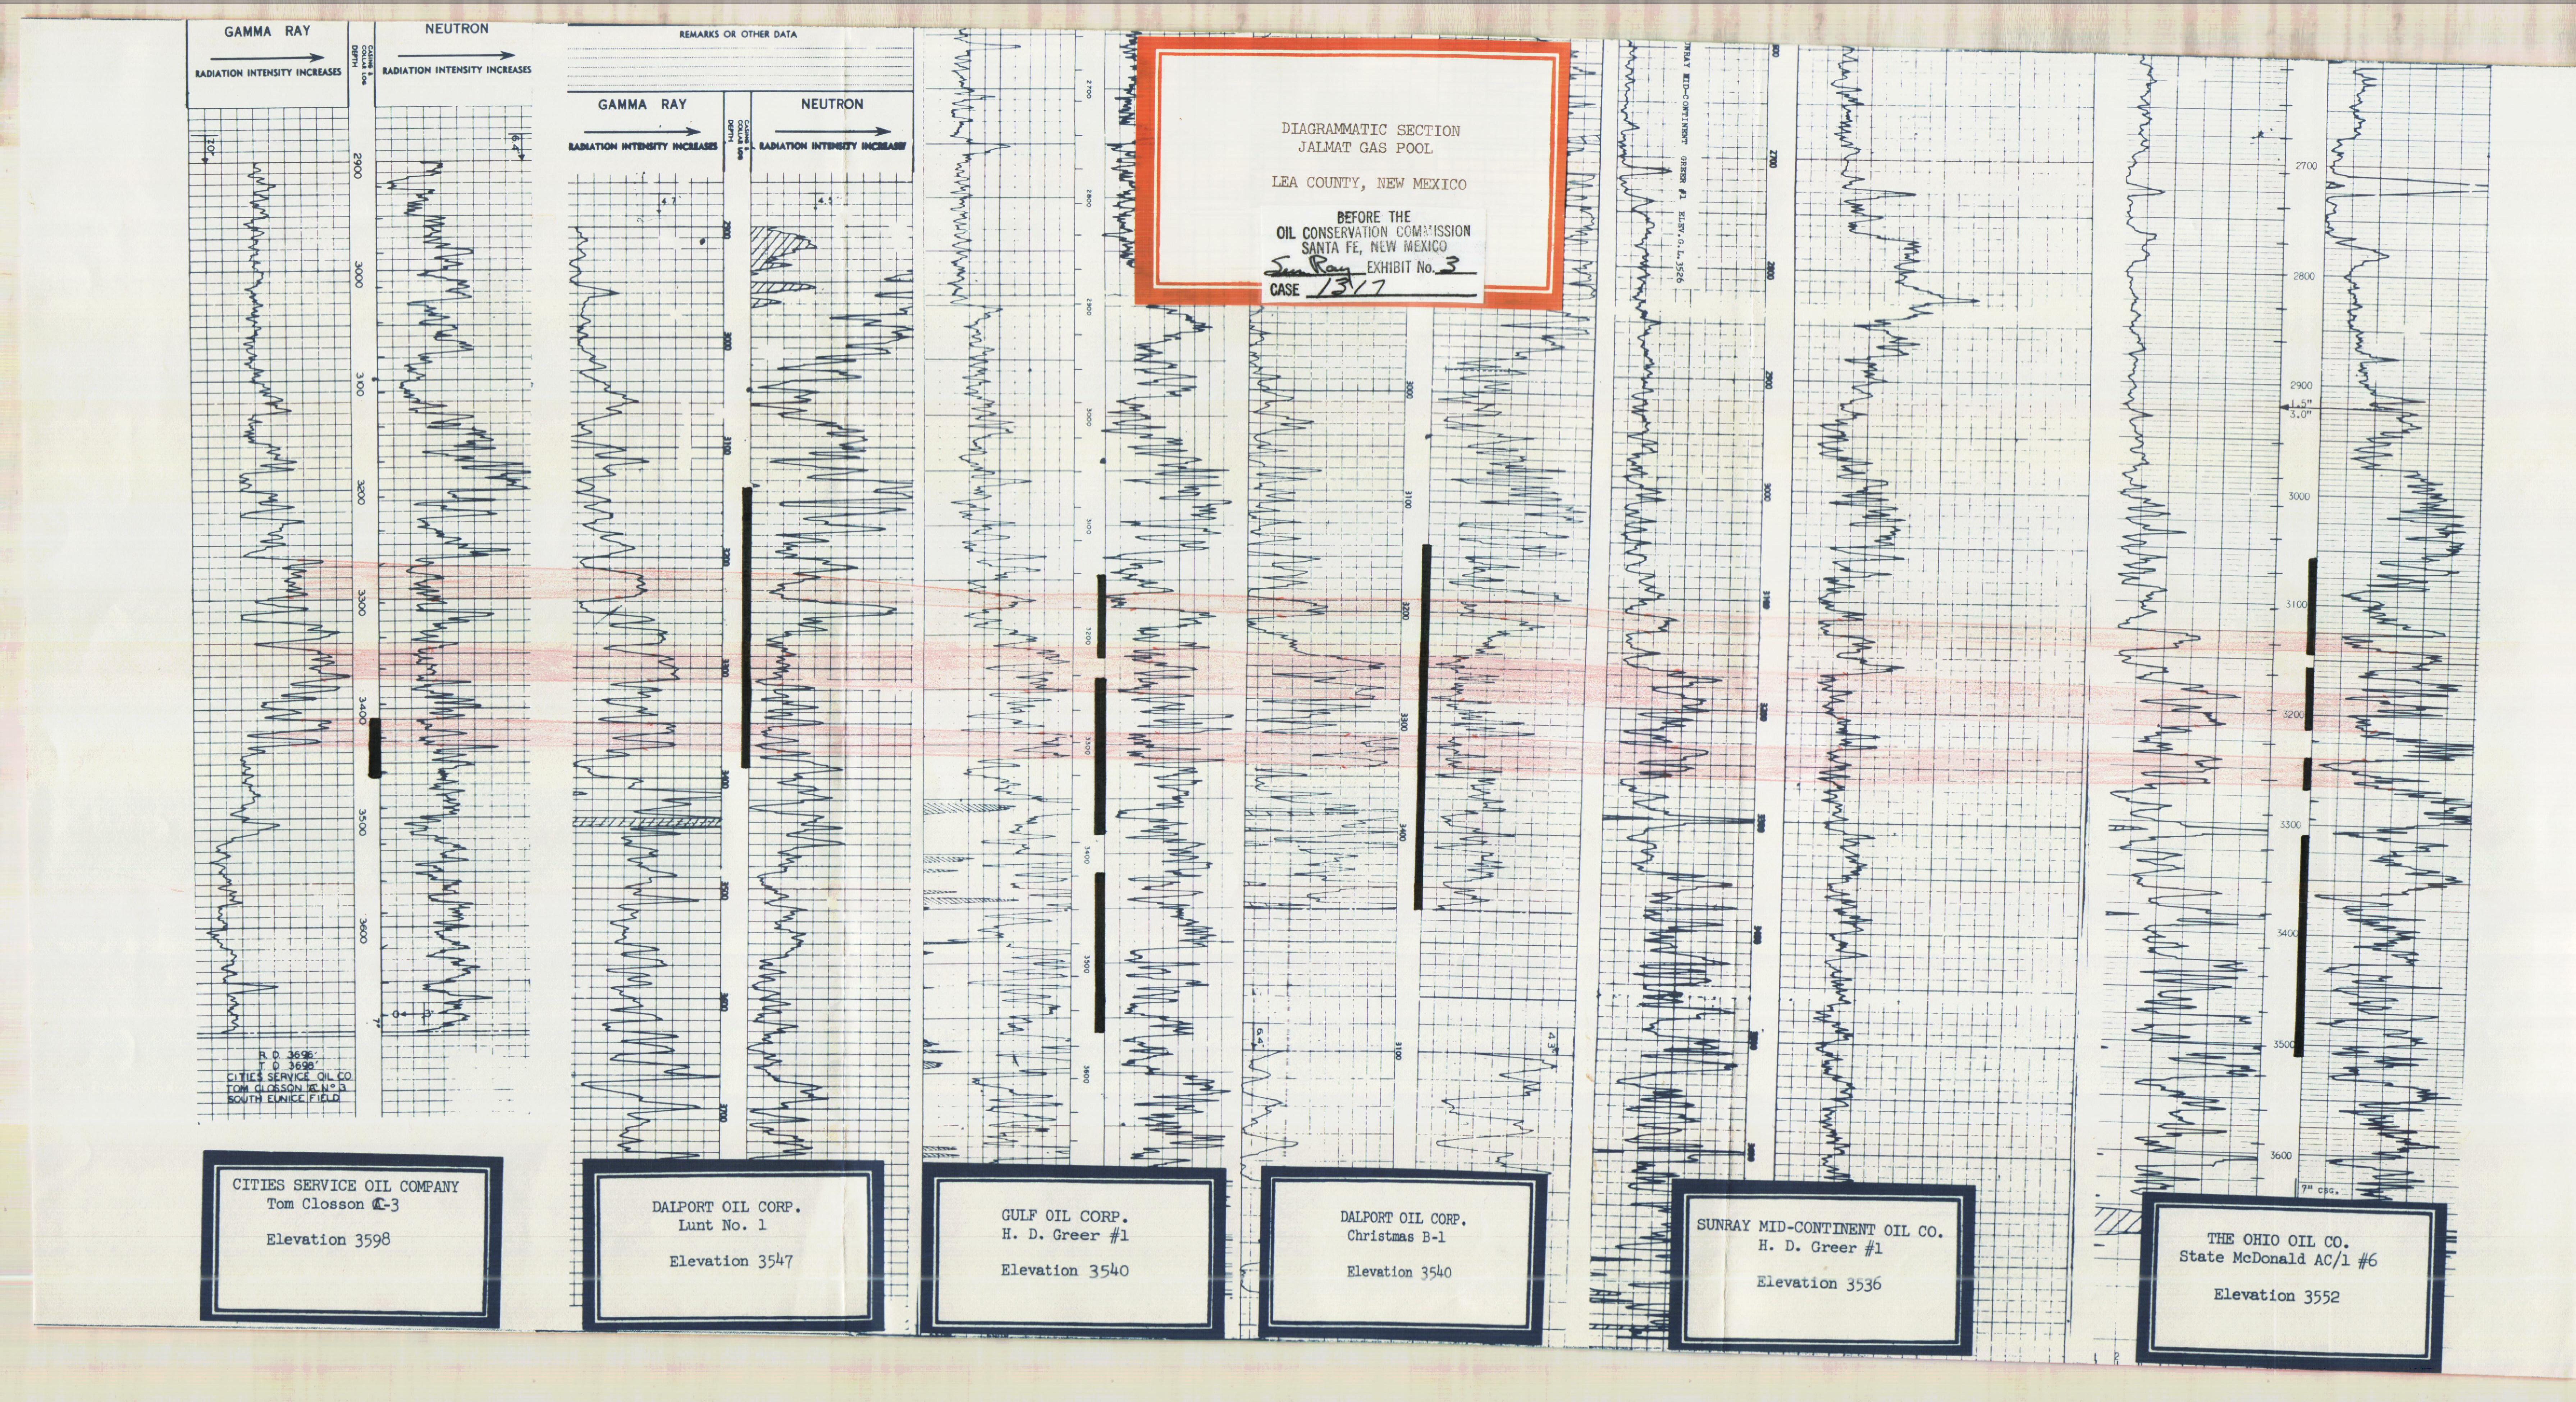 GAMMA RAY
RADIATION INTENSITY INCREASES
CASING &
COLLAR LOG
DEPTH
NEUTRON
RADIATION INTENSITY INCREASES
120"
64"
2900
3000
3100
3200
3300
3400
3500
3600
7"
R D 3696'
T D 3698'
CITIES SERVICE OIL CO
TOM CLOSSON "C" No 3
SOUTH EUNICE FIELD
CITIES SERVICE OIL COMPANY
Tom Closson C-3
Elevation 3598
REMARKS OR OTHER DATA
GAMMA RAY
RADIATION INTENSITY INCREASES
CASING &
COLLAR LOG
DEPTH
NEUTRON
RADIATION INTENSITY INCREASES
4.7
4.5
2900
3000
3100
3200
3300
3400
3500
3600
3700
DALPORT OIL CORP.
Lunt No. 1
Elevation 3547
2700
2800
2900
3000
3100
3200
3300
3400
3500
3600
GULF OIL CORP.
H. D. Greer #1
Elevation 3540
DIAGRAMMATIC SECTION
JALMAT GAS POOL
LEA COUNTY, NEW MEXICO
BEFORE THE
OIL CONSERVATION COMMISSION
SANTA FE, NEW MEXICO
Sun Ray EXHIBIT No. 3
CASE 1317
3000
3100
3200
3300
3400
6.4"
4.3"
3100
DALPORT OIL CORP.
Christmas B-1
Elevation 3540
NRAY MID-CONTINENT GREER #1 ELEV. G.L. 3526
2700
2800
2900
3000
3100
3200
3300
3400
3500
3600
SUNRAY MID-CONTINENT OIL CO.
H. D. Greer #1
Elevation 3536
2700
2800
2900
1.5"
3.0"
3000
3100
3200
3300
3400
3500
3600
7" CSG.
THE OHIO OIL CO.
State McDonald AC/1 #6
Elevation 3552